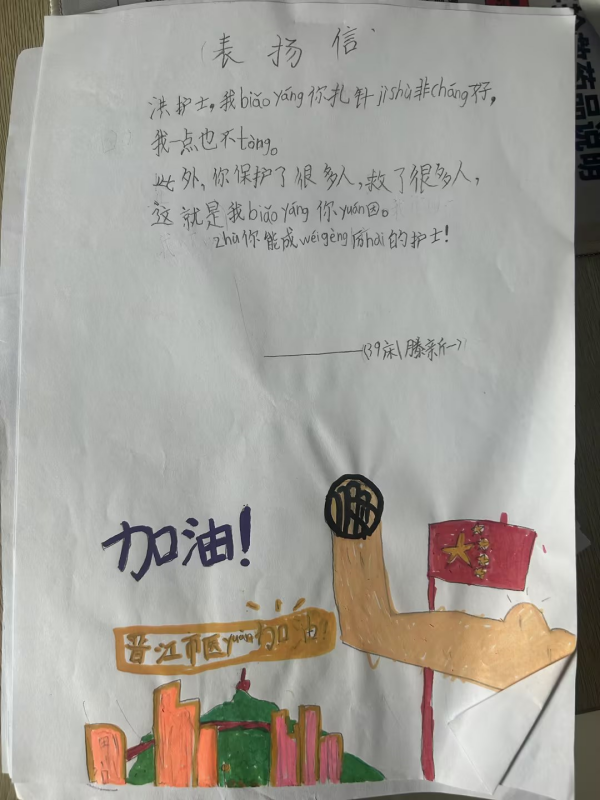 表扬信
洪护士,我biǎo yáng你扎针jì shù非cháng好,
我一点也不tòng。
此外,你保护了很多人,救了很多人,
这就是我biǎo yáng你yuán因。
zhù你能成wéi gèng厉hài的护士!
——(39床\滕新一)
加油!
晋江市区yuàn加油!